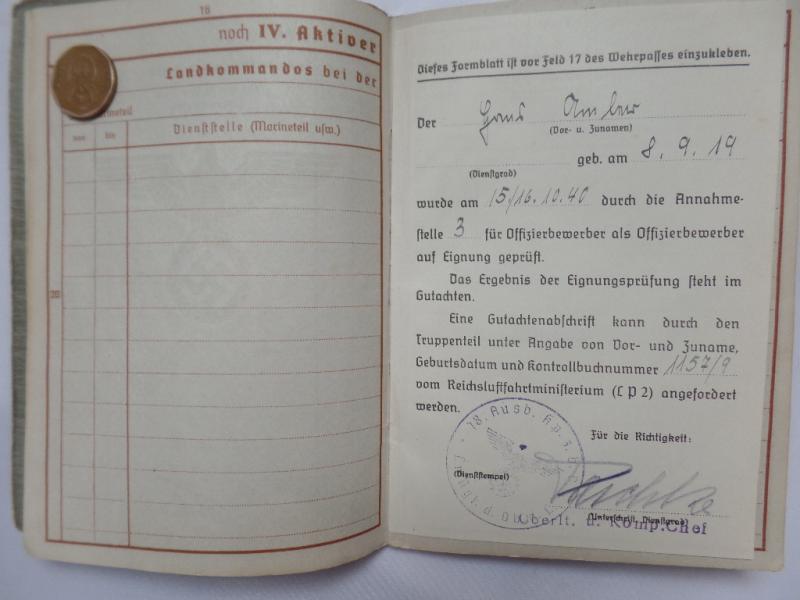 18
noch IV. Aktiver
Landkommandos bei der
von bis Dienststelle (Marineteil usw.)
20
Dieses Formblatt ist vor Feld 17 des Wehrpasses einzukleben.
Der Hans
(Vor- u. Zunamen)
geb. am 8. 9. 19
(Dienstgrad)
wurde am 15/16. 10. 40 durch die Annahme-
stelle 3 für Offizierbewerber als Offizierbewerber
auf Eignung geprüft.
Das Ergebnis der Eignungsprüfung steht im
Gutachten.
Eine Gutachtenabschrift kann durch den
Truppenteil unter Angabe von Vor- und Zuname,
Geburtsdatum und Kontrollbuchnummer 1157/9
vom Reichsluftfahrtministerium (L P 2) angefordert
werden.
18. Ausb. Kp.
Für die Richtigkeit:
(Dienststempel)
(Unterschrift, Dienstgrad)
Oberlt. u. Komp.Chef